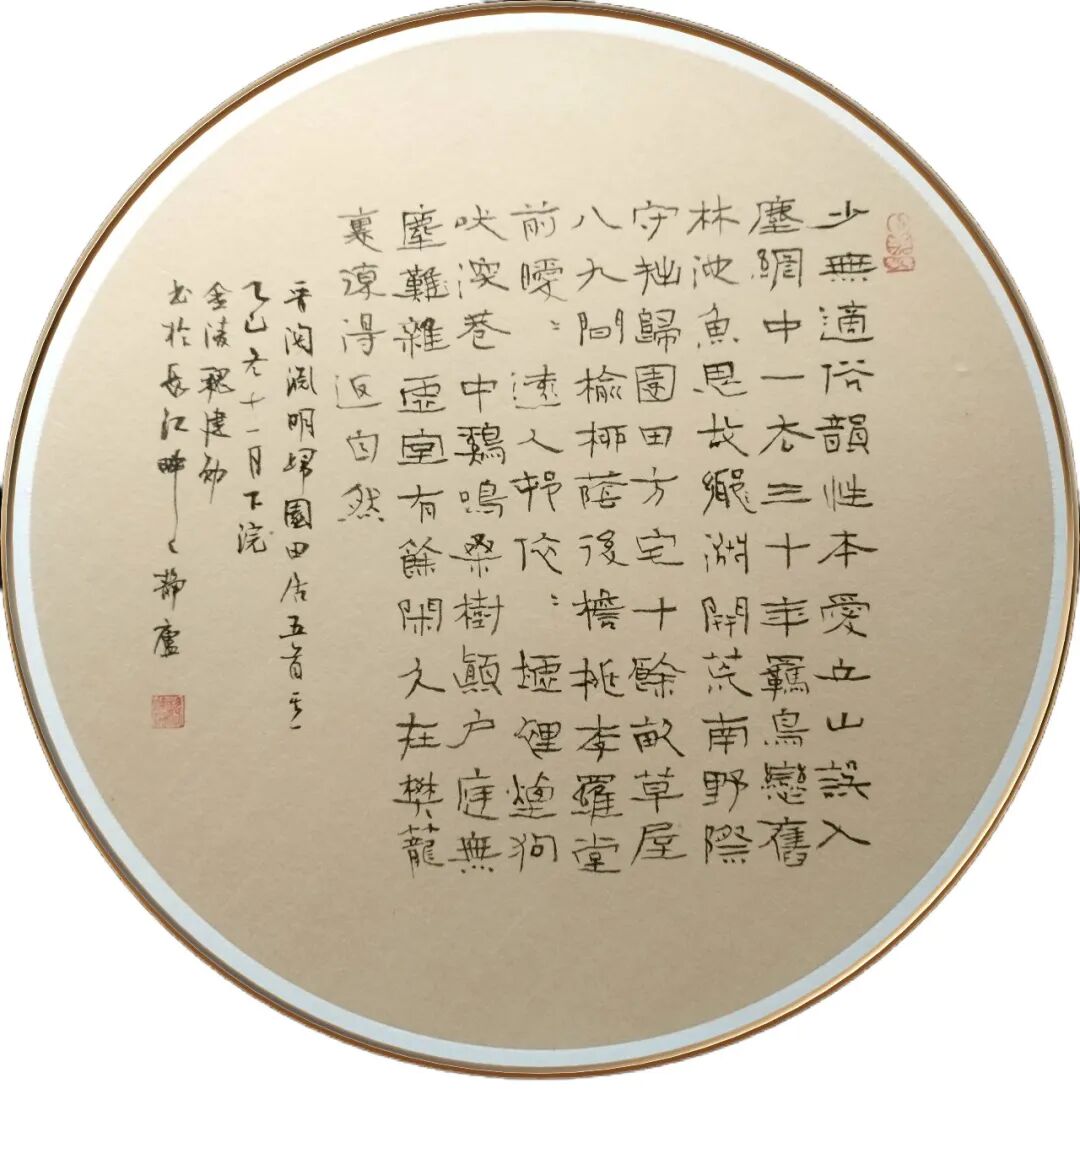 少無適俗韻性本愛丘山誤入
塵網中一去三十年羈鳥戀舊
林池魚思故鄉淵開荒南野際
守拙歸園田方宅十餘畝草屋
八九間榆柳蔭後檐桃李羅堂
前曖〻遠人邨依〻墟裡煙狗
吠深巷中鷄鳴桑樹顛户庭無
塵難雜虛室有餘閑久在樊蘢
裏復得返自然
晋陶淵明歸園田居五首其一
乙巳冬十一月下浣
金陵魏建
书於長江畔之静廬